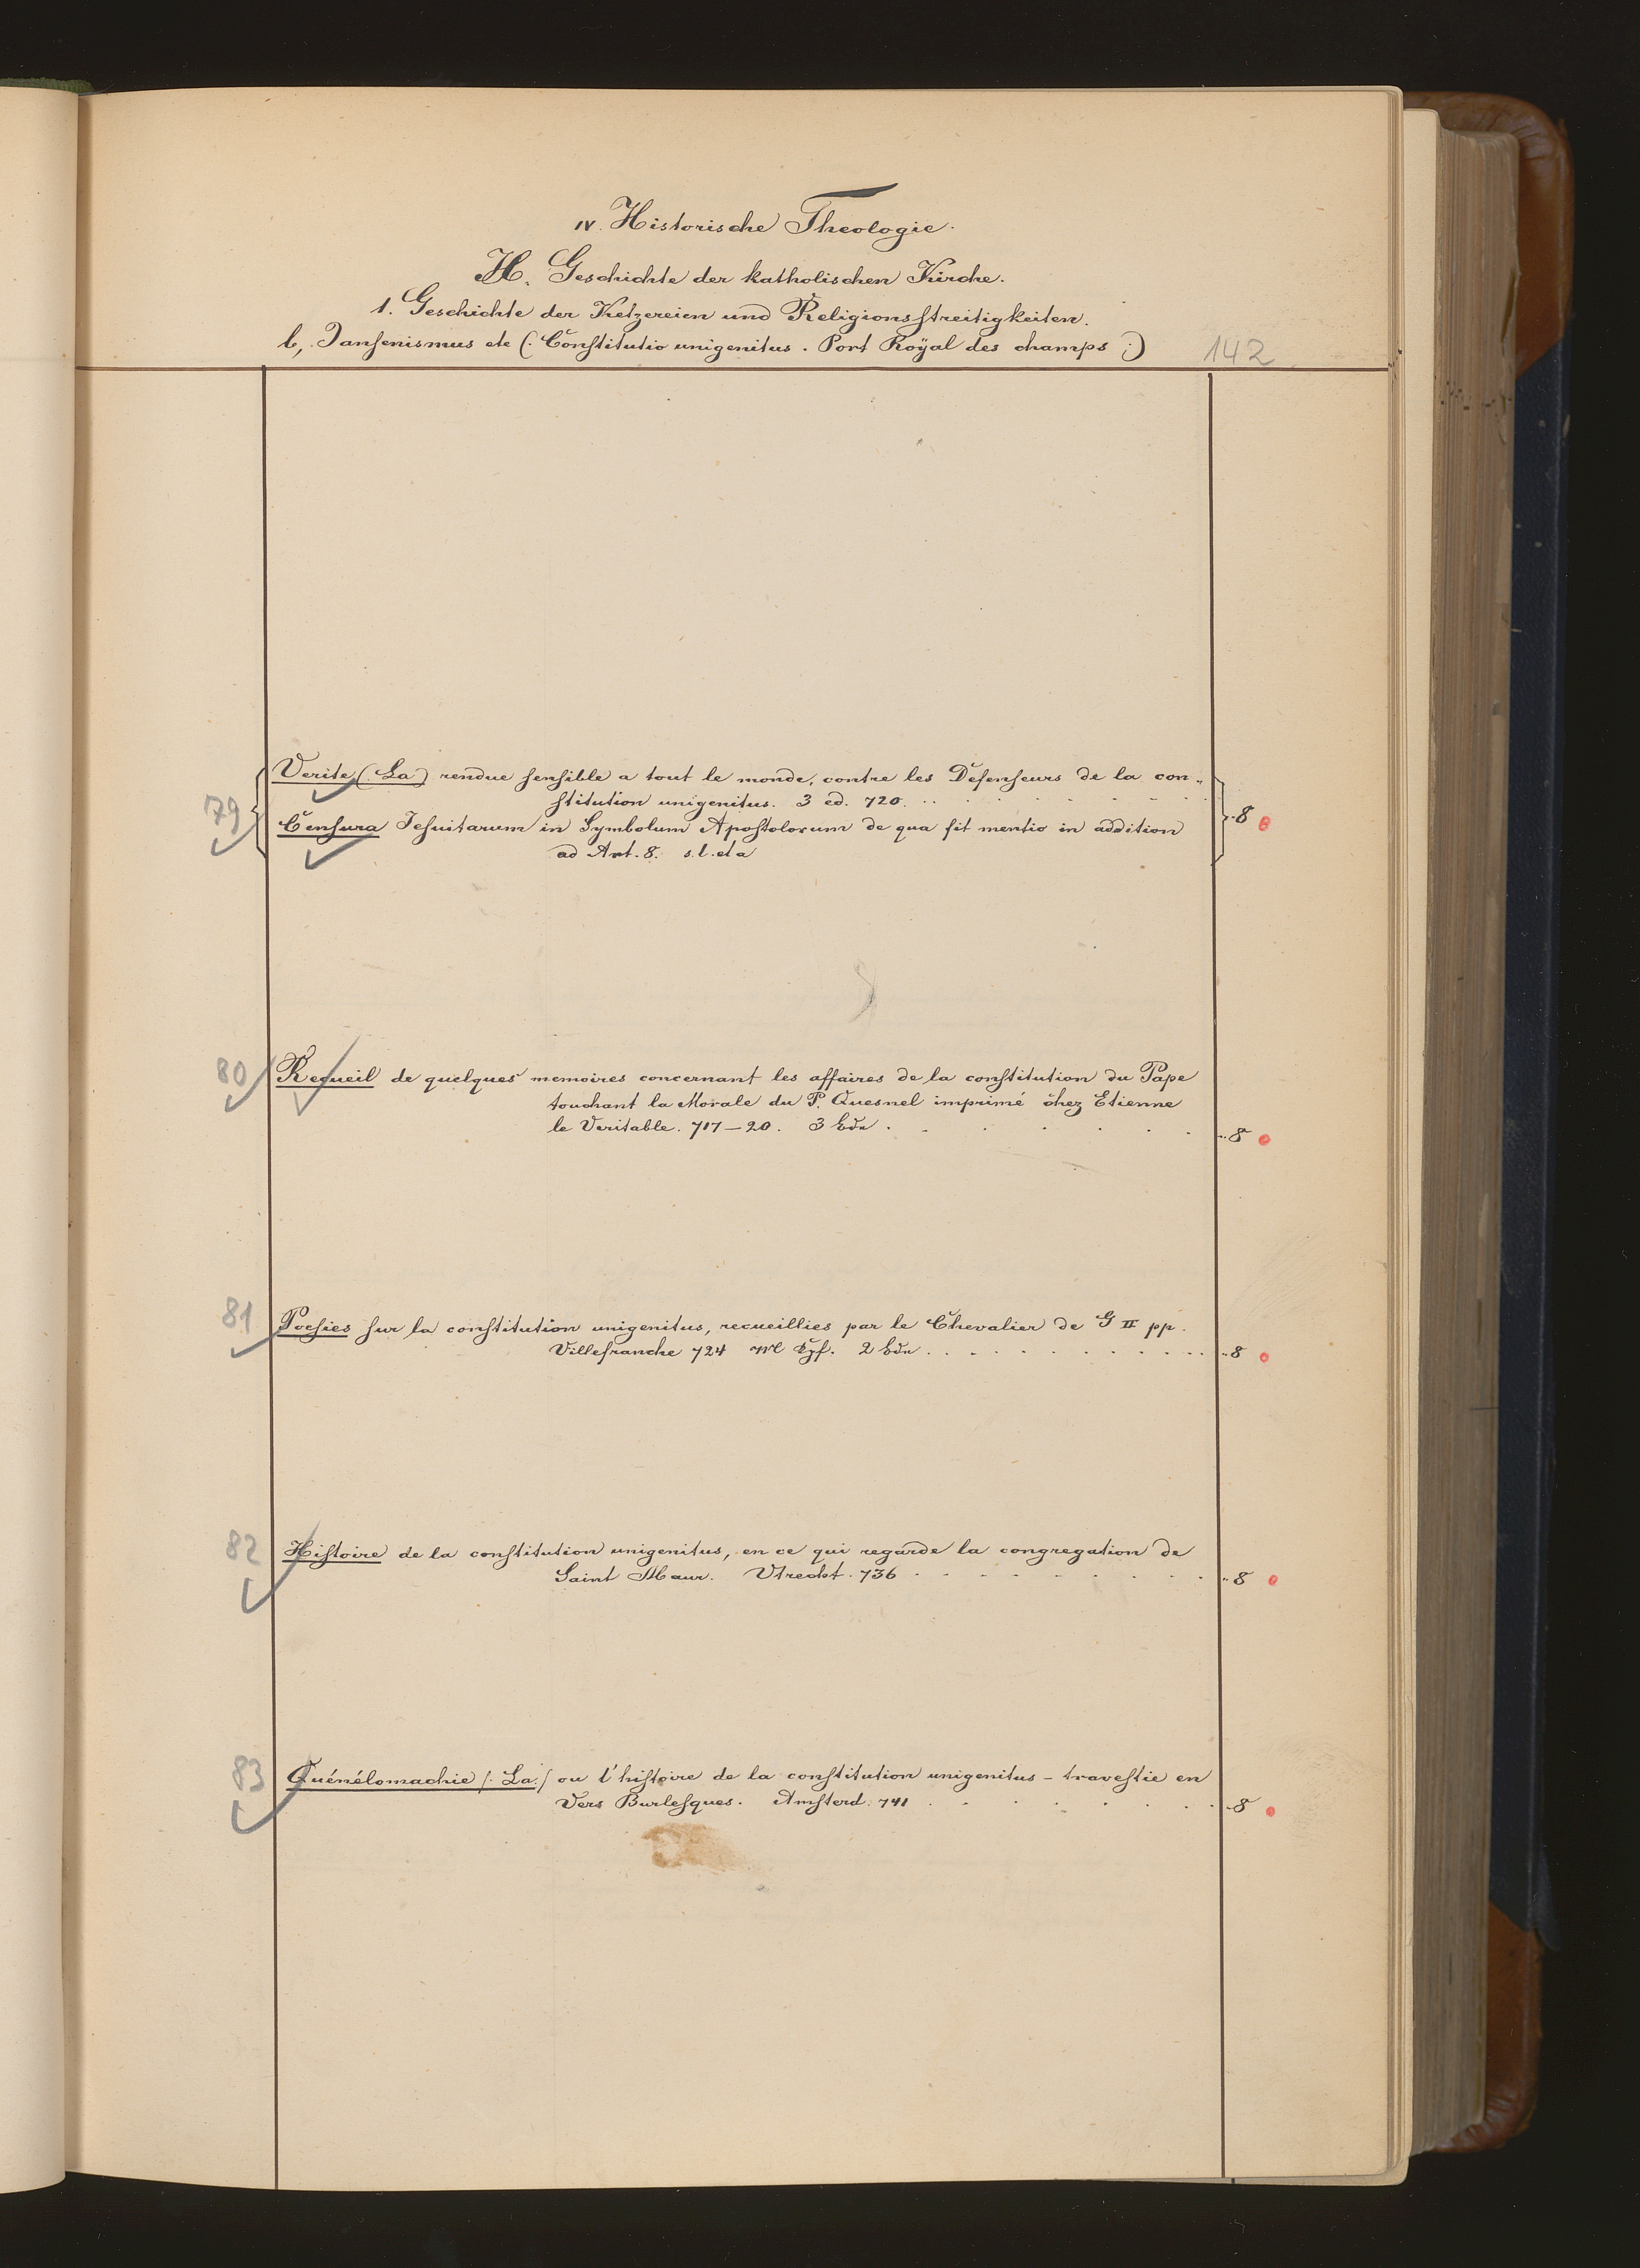 IV. Historische Theologie.
H. Geschichte der katholischen Kirche.
1. Geschichte der Ketzereien und Religionsstreitigkeiten.
b, Jansenismus etc (: Constitutio unigenitus. Port Roÿal des champs :)
142
Verite (: La) rendue sensible a tout le monde, contre les Défenseurs de la con-
stitution unigenitus. 3 ed. 720.
79
8
Censura Jesuitarum in Symbolum Apostolorum de qua fit mentio in addition
ad Art. 8. s. l. et a
80 Recueil de quelques memoires concernant les affaires de la constitution du Pape
touchant la Morale du P. Quesnel imprimé chez Etienne
le Veritable. 717–20. 3 Bde. 8
81 Poesies sur la constitution unigenitus, recueillies par le Chevalier de G II pp.
Villefranche 724 2 Bde 8
82 Histoire de la constitution unigenitus, en ce qui regarde la congregation de
Saint Maur. Utrecht. 736 8
83 Quénélomachie /: La :/ ou l'histoire de la constitution unigenitus – travestie en
Vers Burlesques. Amsterd. 741 8